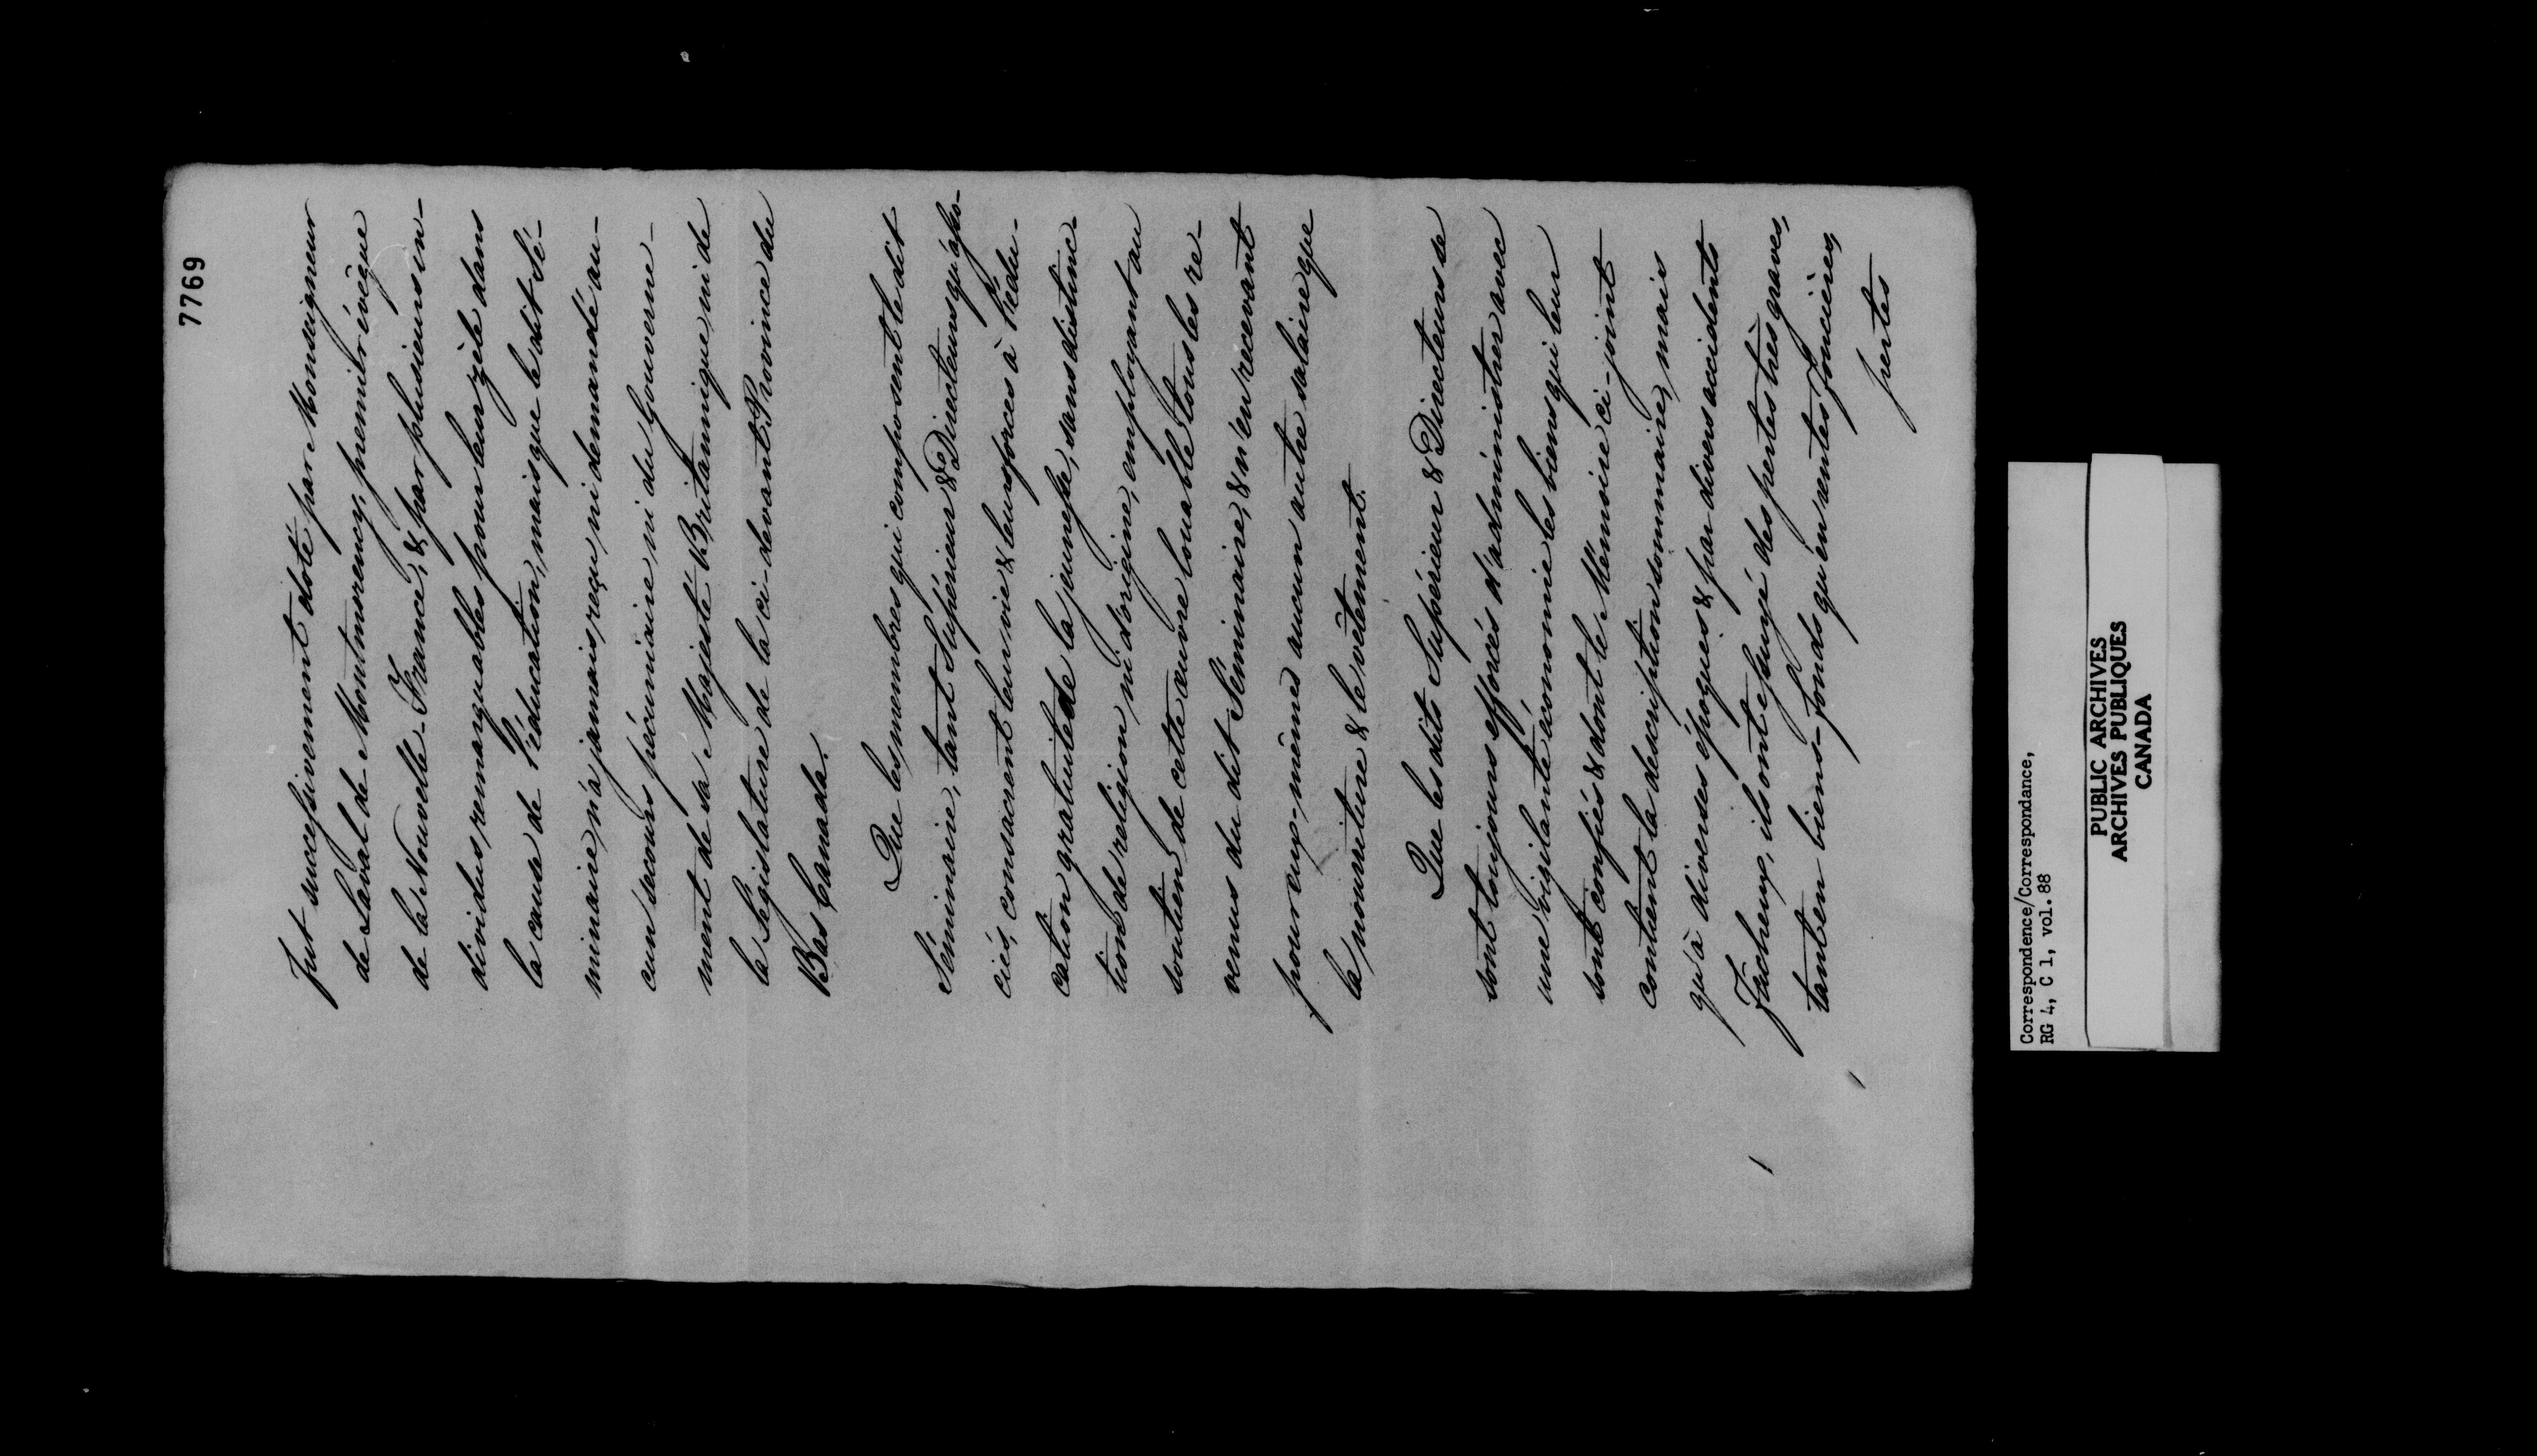 7769
fut successivement doté par Monseigneur
de Laval de Montmorency, premier évêque
de la Nouvelle-France, & par plusieurs in-
dividus remarquables pour leur zèle dans
la cause de l'éducation, mais que le dit Sé-
minaire n'a jamais reçu, ni demandé au-
cun secours pécuniaire, ni du Gouverne-
ment de sa Majesté Britannique, ni de
la Législature de la ci-devant Province du
Bas Canada.
Que les membres qui composent le dit
Séminaire, tant Supérieur & Directeurs qu'asso-
ciés, consacrent leur vie & leurs forces à l'édu-
cation gratuite de la jeunesse, sans distinc-
tion de religion, ni d'origine, employant au
soutien de cette œuvre louable tous les re-
venus du dit Séminaire, & n'en recevant
pour eux-mêmes aucun autre salaire que
la nourriture & le vêtement.
Que les dits Supérieur & Directeurs se
sont toujours efforcés d'administrer avec
une vigilante économie les biens qui leur
sont confiés & dont le Mémoire ci-joint
contient la description sommaire, mais
qu'à diverses époques & par divers accidents
fâcheux, ils ont essuyé des pertes très graves,
tant en biens-fonds qu'en rentes foncières,
pertes
Correspondence/Correspondance,
RG 4, C 1, vol. 88
PUBLIC ARCHIVES
ARCHIVES PUBLIQUES
CANADA